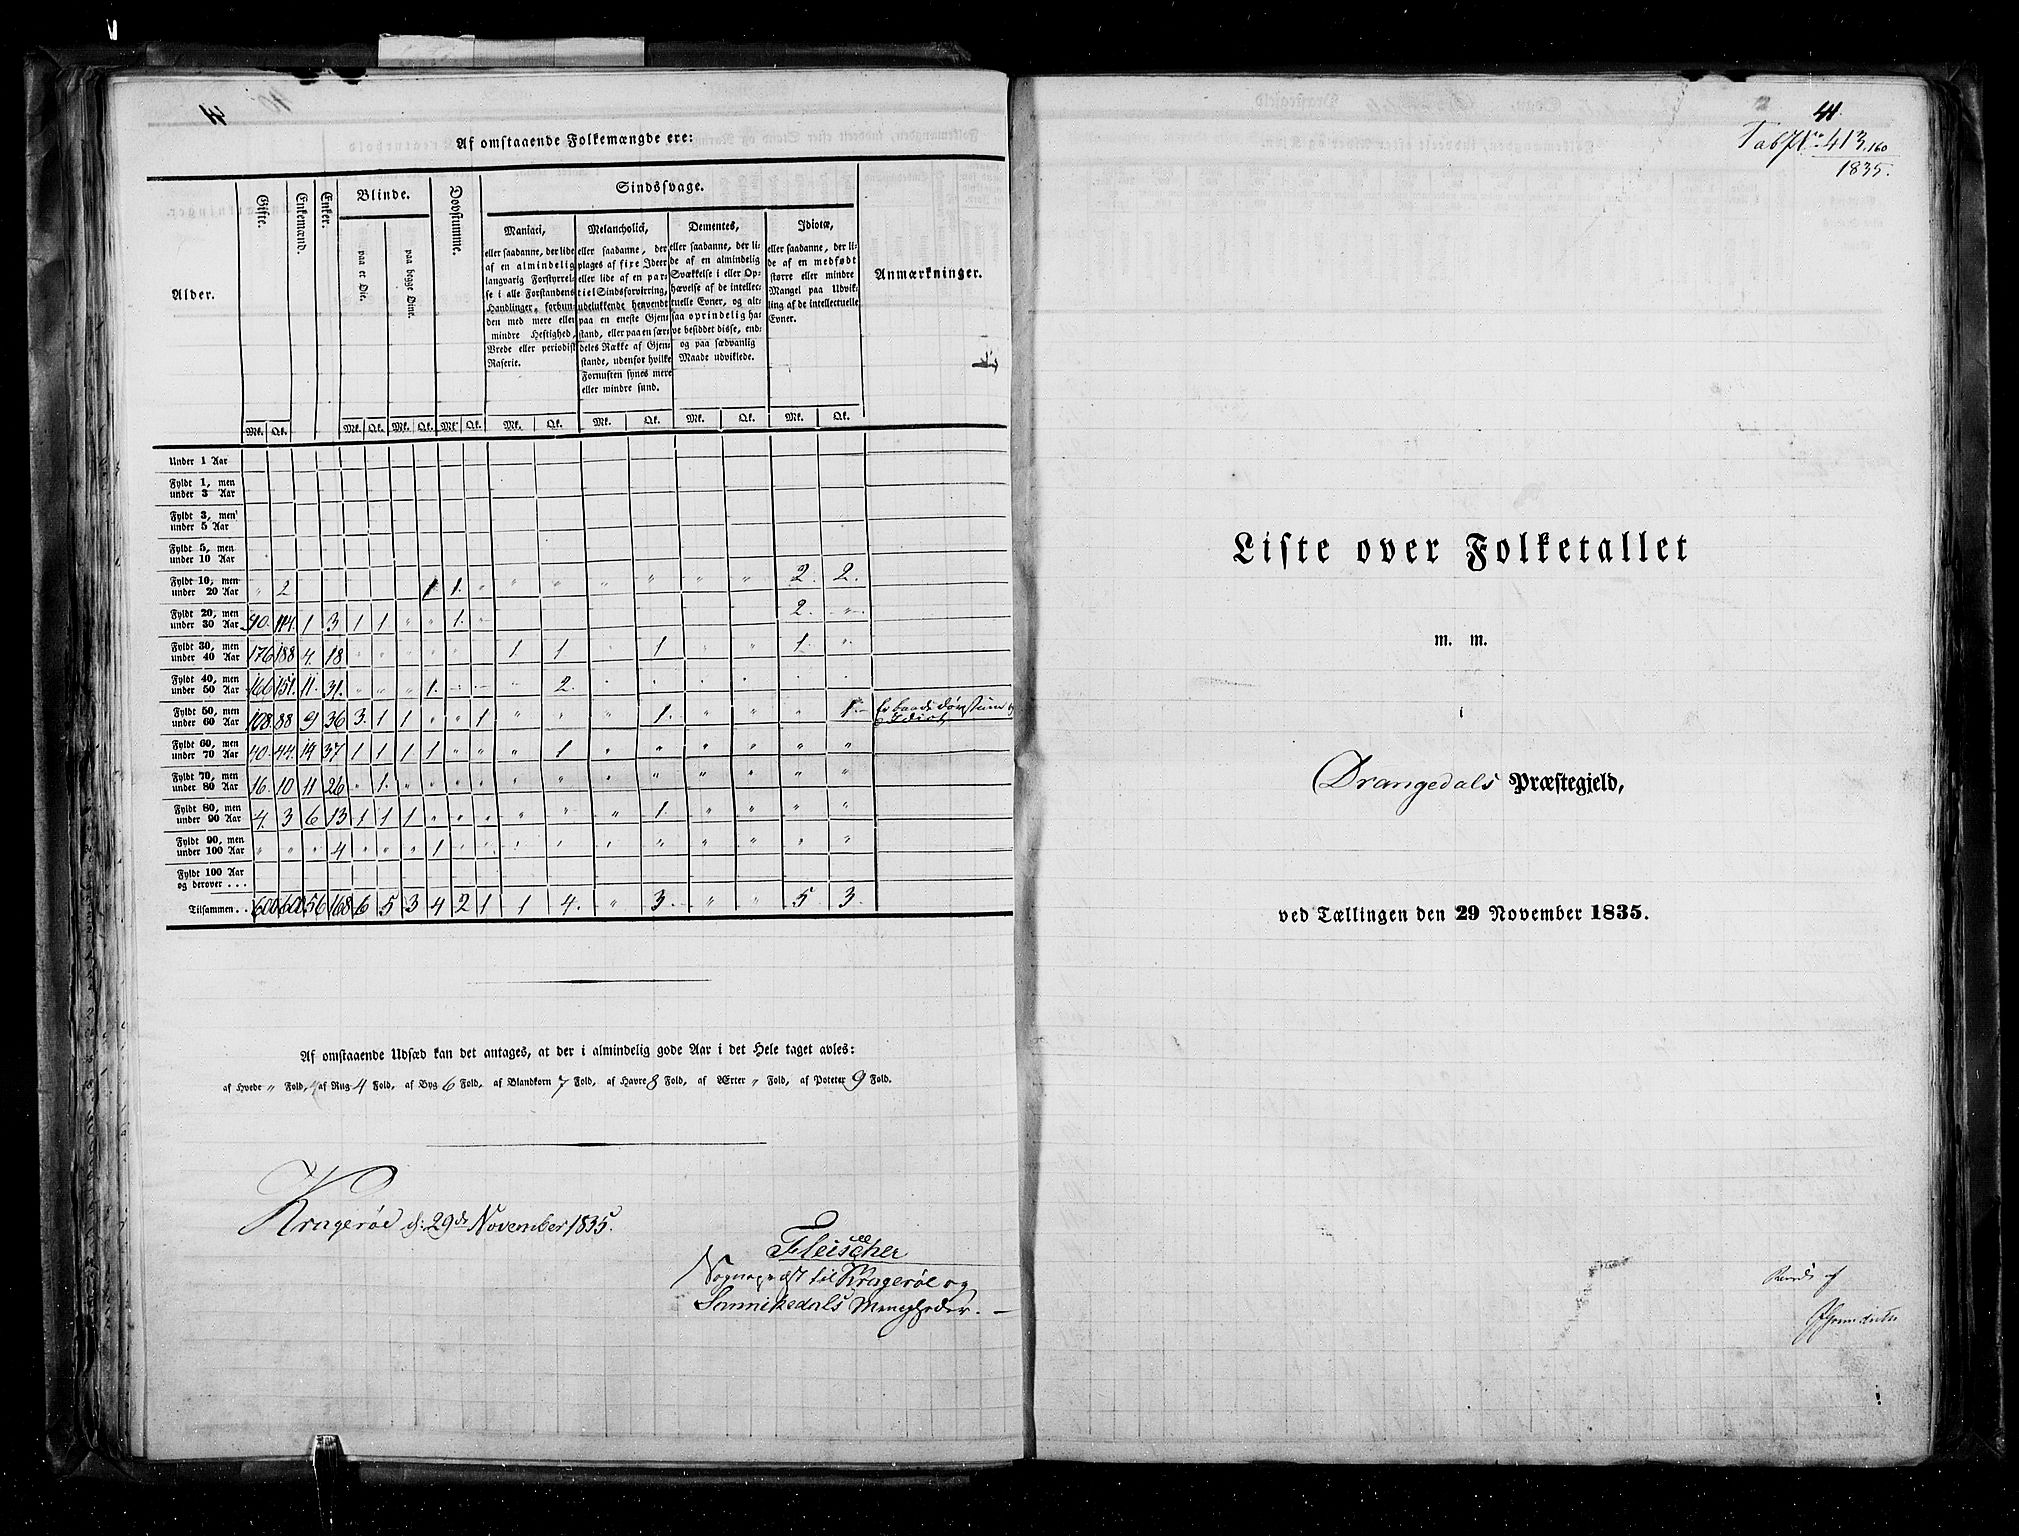 Af omstaaende Folkemængde ere:
Alder. | Gifte. | Enkemænd. | Enker. | Blinde. | Dovstumme. | Sindssvage. | Anmærkninger.
paa et Øie. | paa begge Øine.
Maniaci,
eller saadanne, der lide
af en almindelig
langvarig Forstyrrel-
se i alle Forstandens
Handlinger, forbun-
den med mere eller
mindre Heftighed,
Vrede eller periodisk
Raserie.
Melancholici,
eller saadanne, der
plages af fixe Ideer
eller lide af en par-
tiel Sindsforvirring,
udelukkende henvendt
paa en eneste Gjen-
stand, eller paa en sær-
deles Række af Gjen-
stande, udenfor hvilke
Fornuften synes mere
eller mindre sund.
Dementes,
eller saadanne, der li-
de af en almindelig
Svækkelse i eller Op-
hævelse af de intellec-
tuelle Evner, og alt-
saa oprindelig ha-
ve besiddet disse, end-
og paa sædvanlig
Maade udviklede.
Idiotæ,
eller saadanne, der li-
de af en medfødt
større eller mindre
Mangel paa Udvik-
ling af de intellectuelle
Evner.
Mk. | Qk. | Mk. | Qk. | Mk. | Qk. | Mk. | Qk. | Mk. | Qk. | Mk. | Qk. | Mk. | Qk. | Mk. | Qk.
Under 1 Aar
Fyldt 1, men under 3 Aar
Fyldt 3, men under 5 Aar
Fyldt 5, men under 10 Aar
Fyldt 10, men under 20 Aar | " | 2 | | | | | | 1 | 1. | " | " | " | " | " | " | " | 2. | 2.
Fyldt 20, men under 30 Aar | 90. | 114. | 1 | 3 | 1 | 1 | " | " | 1. | " | | | | | | | 2. | "
Fyldt 30, men under 40 Aar | 176 | 188 | 4. | 18 | " | " | " | " | " | | 1 | 1 | " | 1 | " | " | 1. | "
Fyldt 40, men under 50 Aar | 166 | 151. | 11. | 31. | " | " | " | 1. | " | " | " | 2. | " | " | " | " | " | "
Fyldt 50, men under 60 Aar | 108. | 88 | 9 | 36 | 3. | 1 | 1 | " | " | 1 | " | " | " | 1. | " | " | " | 1. | Er baade døvstum og Idiot
Fyldt 60, men under 70 Aar | 40. | 44. | 19 | 37 | 1 | 1 | 1 | 1 | " | " | " | 1 | " | " | " | " | " | "
Fyldt 70, men under 80 Aar | 16. | 10 | 11 | 26 | " | 1. | " | " | " | " | " | " | " | " | " | " | " | "
Fyldt 80, men under 90 Aar | 4. | 3 | 6 | 13 | 1 | 1 | 1 | " | " | " | " | " | " | 1. | " | " | " | "
Fyldt 90, men under 100 Aar | " | " | " | 4 | " | " | " | 1 | " | " | " | " | " | " | " | " | " | "
Fyldt 100 Aar og derover ...
Tilsammen.. | 600 | 600 | 56 | 168 | 6 | 5 | 3 | 4 | 2 | 1 | 1 | 4. | " | 3. | " | " | 5 | 3.
Af omstaaende Udsæd kan det antages, at der i almindelig gode Aar i det Hele taget avles:
af Hvede " Fold, af Rug 4 Fold, af Byg 6 Fold, af Blandkorn 7 Fold, af Havre 8 Fold, af Ærter " Fold, af Poteter 9 Fold.
Kragerøe d: 29de November 1835.
Fleischer
Sognepræst til Kragerøe og
Sannikedals Menigheder. —
41.
Tab No 413.160
1835.
Liste over Folketallet
m. m.
i
Drangedals Præstegjeld,
ved Tællingen den 29 November 1835.